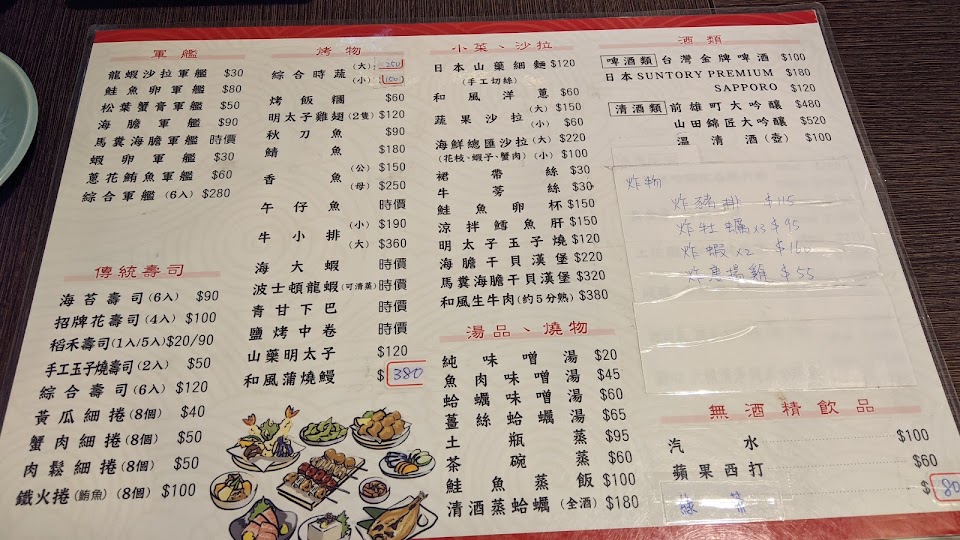 軍艦
龍蝦沙拉軍艦 $30
鮭魚卵軍艦 $80
松葉蟹膏軍艦 $50
海膽軍艦 $90
馬糞海膽軍艦 時價
蝦卵軍艦 $30
蔥花鮪魚軍艦 $60
綜合軍艦(6入) $280
傳統壽司
海苔壽司(6入) $90
招牌花壽司(4入) $100
稻禾壽司(1入/5入)$20/90
手工玉子燒壽司(2入) $50
綜合壽司(6入) $120
黃瓜細捲(8個) $40
蟹肉細捲(8個) $50
肉鬆細捲(8個) $50
鐵火捲(鮪魚)(8個) $100
烤物
綜合時蔬 (大) 250
(小) 150
烤飯糰 $60
明太子雞翅(2隻) $120
秋刀魚 $90
鯖魚 $180
香魚 (公) $150
(母) $250
午仔魚 時價
牛小排 (小) $190
(大) $360
海大蝦 時價
波士頓龍蝦(可清蒸) 時價
青甘下巴 時價
鹽烤中卷 時價
山藥明太子 $120
和風蒲燒鰻 $380
小菜、沙拉
日本山藥細麵 $120
(手工切絲)
和風洋蔥 $60
蔬果沙拉 (大) $150
(小) $60
海鮮總匯沙拉(大) $220
(花枝、蝦子、蟹肉)(小) $100
裙帶絲 $30
牛蒡絲 $30
鮭魚卵杯 $150
涼拌鱈魚肝 $150
明太子玉子燒 $120
海膽干貝漢堡 $220
馬糞海膽干貝漢堡 $320
和風生牛肉(約5分熟) $380
湯品、燒物
純味噌湯 $20
魚肉味噌湯 $45
蛤蠣味噌湯 $60
薑絲蛤蠣湯 $65
土瓶蒸 $95
茶碗蒸 $60
鮭魚蒸飯 $100
清酒蒸蛤蠣(全酒) $180
酒類
啤酒類 台灣金牌啤酒 $100
日本SUNTORY PREMIUM $180
SAPPORO $120
清酒類 前雄町大吟釀 $480
山田錦匠大吟釀 $520
溫清酒(壺) $100
炸物
炸豬排 $115
炸牡蠣x3 $95
炸蝦x2
$55
無酒精飲品
汽水 $100
蘋果西打 $60
綠茶 $80